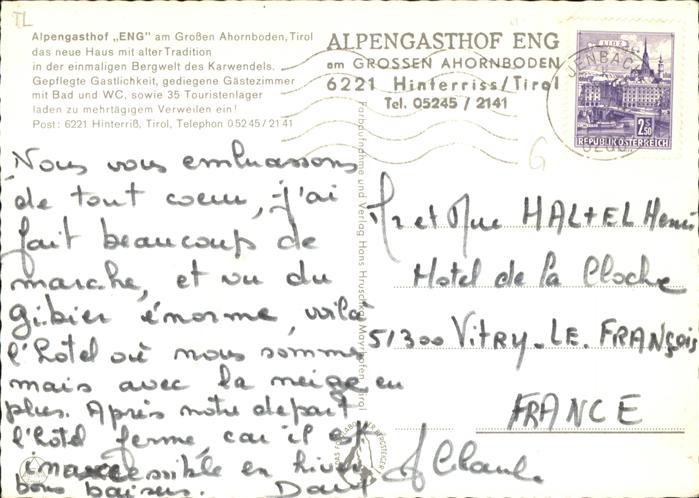 TL
Alpengasthof „ENG" am Großen Ahornboden, Tirol
das neue Haus mit alter Tradition
in der einmaligen Bergwelt des Karwendels.
Gepflegte Gastlichkeit, gediegene Gästezimmer
mit Bad und WC, sowie 35 Touristenlager
laden zu mehrtägigem Verweilen ein!
Post: 6221 Hinterriß, Tirol, Telephon 05245/2141
ALPENGASTHOF ENG
am GROSSEN AHORNBODEN
6221 Hinterriss/Tirol
Tel. 05245 / 2141
JENBACH
2.50
REPUBLIK ÖSTERREICH
G
Nous vous embrassons
de tout coeur, j'ai
fait beaucoup de
marche, et vu du
gibier énorme, voilà
l'hôtel où nous sommes
mais avec la neige en
plus. Après notre départ
l'hôtel ferme car il est
inaccessible en hiver
bons baisers.
Farbaufnahme und Verlag Hans Hruschka, Mayrhofen, Tirol
Mr et Mme HALTEL Henri
Hotel de la Cloche
51300 VITRY-LE-FRANÇOIS
FRANCE